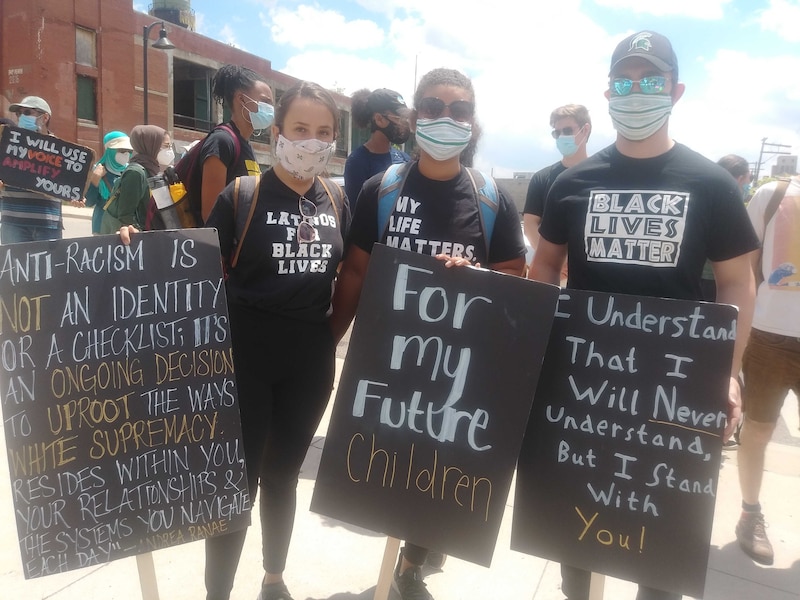 I WILL USE
MY VOICE TO
AMPLIFY
YOURS
ANTI-RACISM IS
NOT AN IDENTITY
OR A CHECKLIST; IT'S
AN ONGOING DECISION
TO UPROOT THE WAYS
WHITE SUPREMACY
RESIDES WITHIN YOU,
YOUR RELATIONSHIPS &
THE SYSTEMS YOU NAVIGATE
EACH DAY" -ANDREA RANAE
LATINOS
FOR
BLACK
LIVES
MY
LIFE
MATTERS
For
my
Future
Children
BLACK
LIVES
MATTER
I Understand
That I
Will Never
understand,
But I Stand
With
You!